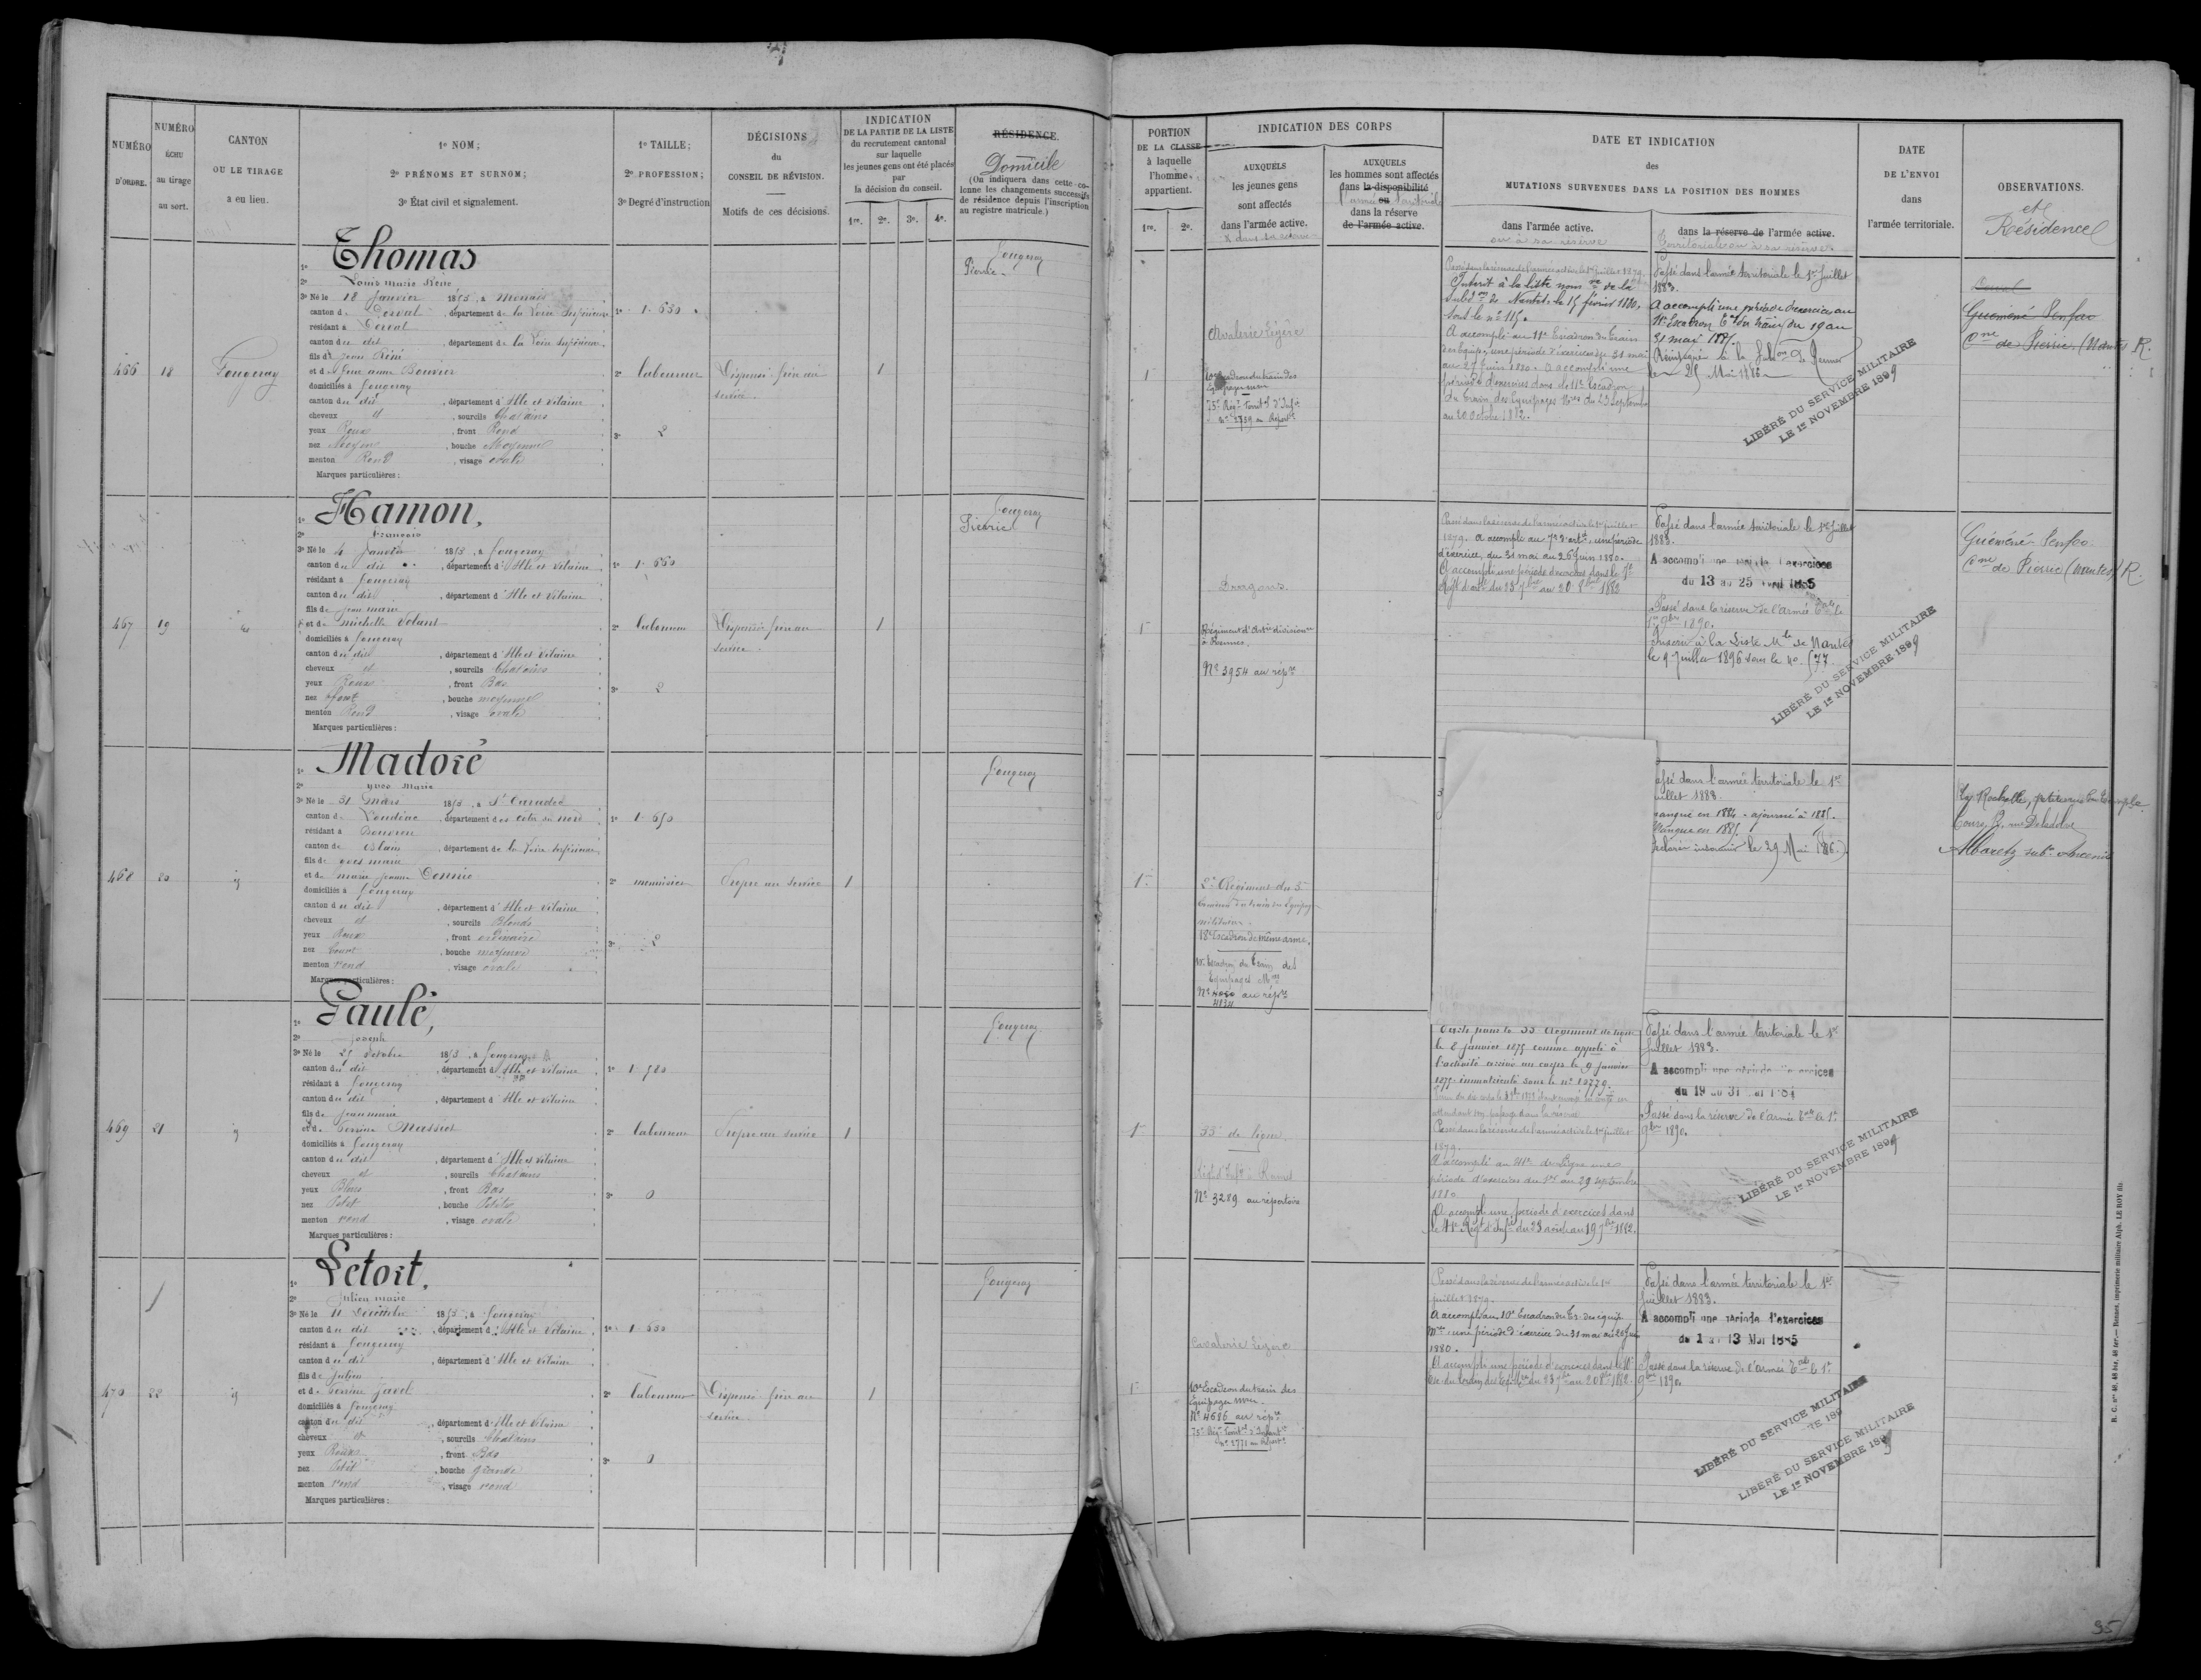 NUMÉRO
D'ORDRE.
NUMÉRO
ÉCHU
au tirage
au sort.
CANTON
OU LE TIRAGE
a eu lieu.
1º NOM;
2º PRÉNOMS ET SURNOM;
3º État civil et signalement.
1º TAILLE;
2º PROFESSION;
3º Degré d'instruction
DÉCISIONS
du
CONSEIL DE RÉVISION.
Motifs de ces décisions.
INDICATION
DE LA PARTIE DE LA LISTE
du recrutement cantonal
sur laquelle
les jeunes gens ont été placés
par
la décision du conseil.
1re. 2e. 3e. 4e.
RÉSIDENCE.
Domicile
(On indiquera dans cette co-
lonne les changements successifs
de résidence depuis l'inscription
au registre matricule.)
PORTION
DE LA CLASSE
à laquelle
l'homme
appartient.
1re. 2e.
INDICATION DES CORPS
AUXQUELS
les jeunes gens
sont affectés
dans l'armée active.
AUXQUELS
les hommes sont affectés
dans la disponibilité
ou
dans la réserve
de l'armée active.
DATE ET INDICATION
des
MUTATIONS SURVENUES DANS LA POSITION DES HOMMES
dans l'armée active.
ou à sa réserve
dans la réserve de l'armée active.
Territoriale ou à sa réserve
DATE
DE L'ENVOI
dans
l'armée territoriale.
OBSERVATIONS.
et
Résidence
466
18
Fougeray
1º Thomas
2º Louis Marie René
3º Né le 18 Janvier 1853, à Mouais
canton de Derval, département de la Loire Inférieure
résidant à Derval
canton du dit, département de la Loire Inférieure
fils de René
et de Jeanne Bouvier
domiciliés à Fougeray
canton du dit, département d'Ille et Vilaine
cheveux et, sourcils Chatains
yeux Roux, front Rond
nez Moyen, bouche Moyenne
menton Rond, visage ovale
Marques particulières:
1º 1.650
2º laboureur
3º 2
Dispensé frère au
service
1
Fougeray
Pierric
1
Cavalerie légère
Escadron du train des
75e Régt territ.al d'Inf.ie
nº 2739 au Répert.re
Passé dans la réserve de l'armée active le 1er Juillet 1879.
Inscrit à la liste nom.ve de la
subd.on de Nantes le 15 février 1880,
sous le nº 115.
A accompli au 11e Escadron du train
des Equip. une période d'exercices du 31 mai
au 27 juin 1880. A accompli une
période d'exercices dans le 11e Escadron
du train des Equipages M.res du 23 septembre
au 20 octobre 1882.
Passé dans l'armée territoriale le 1er Juillet
1883.
A accompli une période d'exercices au
11e Escadron T.al du train du 19 au
31 mai 1885.
Réintégré à la Sub.on de Rennes
le 25 Mai 1886
LIBÉRÉ DU SERVICE MILITAIRE
LE 1er NOVEMBRE 1899
Derval
Guéméné Penfao
C.ne de Pierric (Nantes) R.
467
19
id
1º Hamon,
2º François
3º Né le 4 Janvier 1853, à Fougeray
canton du dit, département d'Ille et Vilaine
résidant à Fougeray
canton du dit, département d'Ille et Vilaine
fils de Jean Marie
et de Michelle Volant
domiciliés à Fougeray
canton du dit, département d'Ille et Vilaine
cheveux et, sourcils Chatains
yeux Roux, front Bas
nez fort, bouche moyenne
menton Rond, visage ovale
Marques particulières:
1º 1.660
2º laboureur
3º 2
Dispensé frère au
service
1
Fougeray
Pierric
1
Dragons
Régiment d'Art.ie division.re
à Rennes.
Nº 3954 au rép.re
Passé dans la réserve de l'armée active le 1er juillet
1879. A accompli au 7e d'art.ie une période
d'exercices, du 31 mai au 26 Juin 1880.
A accompli une période d'exercices dans le 7e
Régt d'art.ie du 23 7bre au 20 8bre 1882
Passé dans l'armée territoriale le 1er Juillet
1883.
A accompli une période d'exercices
du 13 au 25 avril 1885
Passé dans la réserve de l'Armée T.ale le
1er 9bre 1890.
Inscrit à la Liste M.le de Nantes
le 9 Juillet 1896 sous le nº 577
LIBÉRÉ DU SERVICE MILITAIRE
LE 1er NOVEMBRE 1899
Guéméné-Penfao.
C.ne de Pierric (Nantes) R.
468
20
id
1º Madoré
2º Yves Marie
3º Né le 31 Mars 1853, à St Caradec
canton de Loudéac, département des Côtes du Nord
résidant à
canton de Blain, département de la Loire Inférieure
fils de Yves Marie
et de Marie Jeanne
domiciliés à Fougeray
canton du dit, département d'Ille et Vilaine
cheveux et, sourcils Blonds
yeux Roux, front ordinaire
nez Court, bouche moyenne
menton rond, visage ovale
Marques particulières:
1º 1.650
2º menuisier
3º 2
Propre au service
1
Fougeray
1
18e Escadron de même arme.
Escadron du Train des
Equipages M.res
Nº 4050 au rép.re
4134
assé dans l'armée territoriale le 1er
uillet 1883.
anqué en 1884. ajourné à 1885.
Manqué en 1885.
Déclaré insoumis le 29 Mai 1886.
La Rochelle, petite rue du Temple
Tours,
Abbaretz sub.on Ancenis
469
21
id
1º Gaulé,
2º Joseph
3º Né le 25 Octobre 1853, à Fougeray
canton du dit, département d'Ille et Vilaine
résidant à Fougeray
canton du dit, département d'Ille et Vilaine
fils de Jean Marie
et de Perrine Massiot
domiciliés à Fougeray
canton du dit, département d'Ille et Vilaine
cheveux et, sourcils Chatains
yeux Bleus, front Bas
nez Petit, bouche Petite
menton rond, visage ovale
Marques particulières:
1º 1.580
2º laboureur
3º 0
Propre au service
1
Fougeray
1
33e de ligne.
Régt d'Inf.ie à Rennes
Nº 3289 au répertoire
Dirigé pour le 33 Régiment de ligne
le 8 janvier 1875 comme appelé à
l'activité arrivé au corps le 9 Janvier
1875 immatriculé sous le nº 10779.
attendant son passage dans la réserve
Passé dans la réserve de l'armée active le 1er juillet
1879.
A accompli au 41e de Ligne une
période d'exercices du 1er au 29 septembre
1880
A accompli une période d'exercices dans
le 41e Régt d'Inf.ie du 23 août au 19 7bre 1882.
Passé dans l'armée territoriale le 1er
Juillet 1883.
A accompli une période d'exercices
du 19 au 31
Passé dans la réserve de l'Armée T.ale le 1er
9bre 1890.
LIBÉRÉ DU SERVICE MILITAIRE
LE 1er NOVEMBRE 1899
470
22
id
1º Letort.
2º Julien Marie
3º Né le 11 Décembre 1853, à Fougeray
canton du dit, département d'Ille et Vilaine
résidant à Fougeray
canton du dit, département d'Ille et Vilaine
fils de Julien
et de Perrine Javel
domiciliés à Fougeray
canton du dit, département d'Ille et Vilaine
cheveux et, sourcils Chatains
yeux Roux, front Bas
nez Petit, bouche grande
menton rond, visage rond
Marques particulières:
1º 1.630
2º laboureur
3º 0
Dispensé frère au
service
1
Fougeray
1
Cavalerie légère
10e Escadron du train des
Equipages M.res
Nº 4686 au rép.re
75e Régt Territ.al d'Infant.ie
nº 2771 au Répert.re
Passé dans la réserve de l'armée active le 1er
juillet 1879.
A accompli au 10e Escadron du Tr. des équip.
M.res une période d'exercices du 31 mai au 26 Juin
1880.
A accompli une période d'exercices dans le 10e
Esc. du train des Eq. M.res du 23 7bre au 20 8bre 1882.
Passé dans l'armée territoriale le 1er
Juillet 1883.
A accompli une période d'exercices
du 1 au 13 Mai 1885
Passé dans la réserve de l'Armée T.ale le 1er
9bre 1890
LIBÉRÉ DU SERVICE MILITAIRE
LIBÉRÉ DU SERVICE MILITAIRE
LE 1er NOVEMBRE 1899
R. C. nos 40, 48 bis, 48 ter.— Rennes, imprimerie militaire Alph. LE ROY fils
95